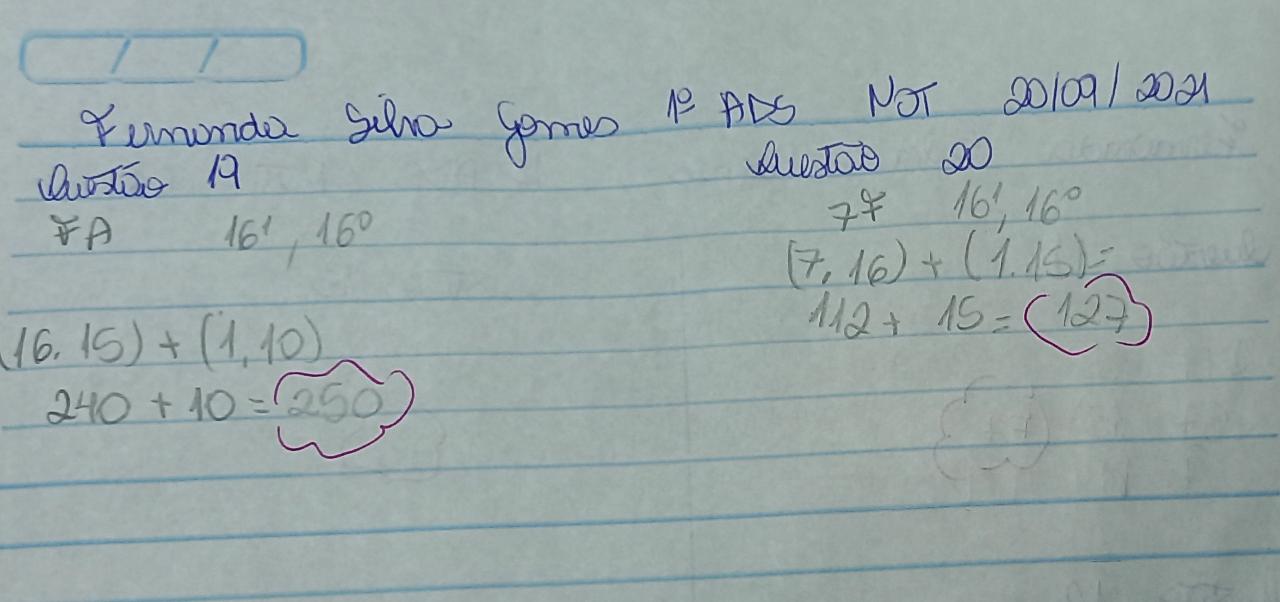 Fernanda Silva Gomes 1º ADS NOT 20/09/2021
Questão 19
FA 16¹, 16⁰
(16.15) + (1,10)
240 + 10 = 250
Questão 20
7F 16¹, 16⁰
(7.16) + (1.15)=
112 + 15 = 127